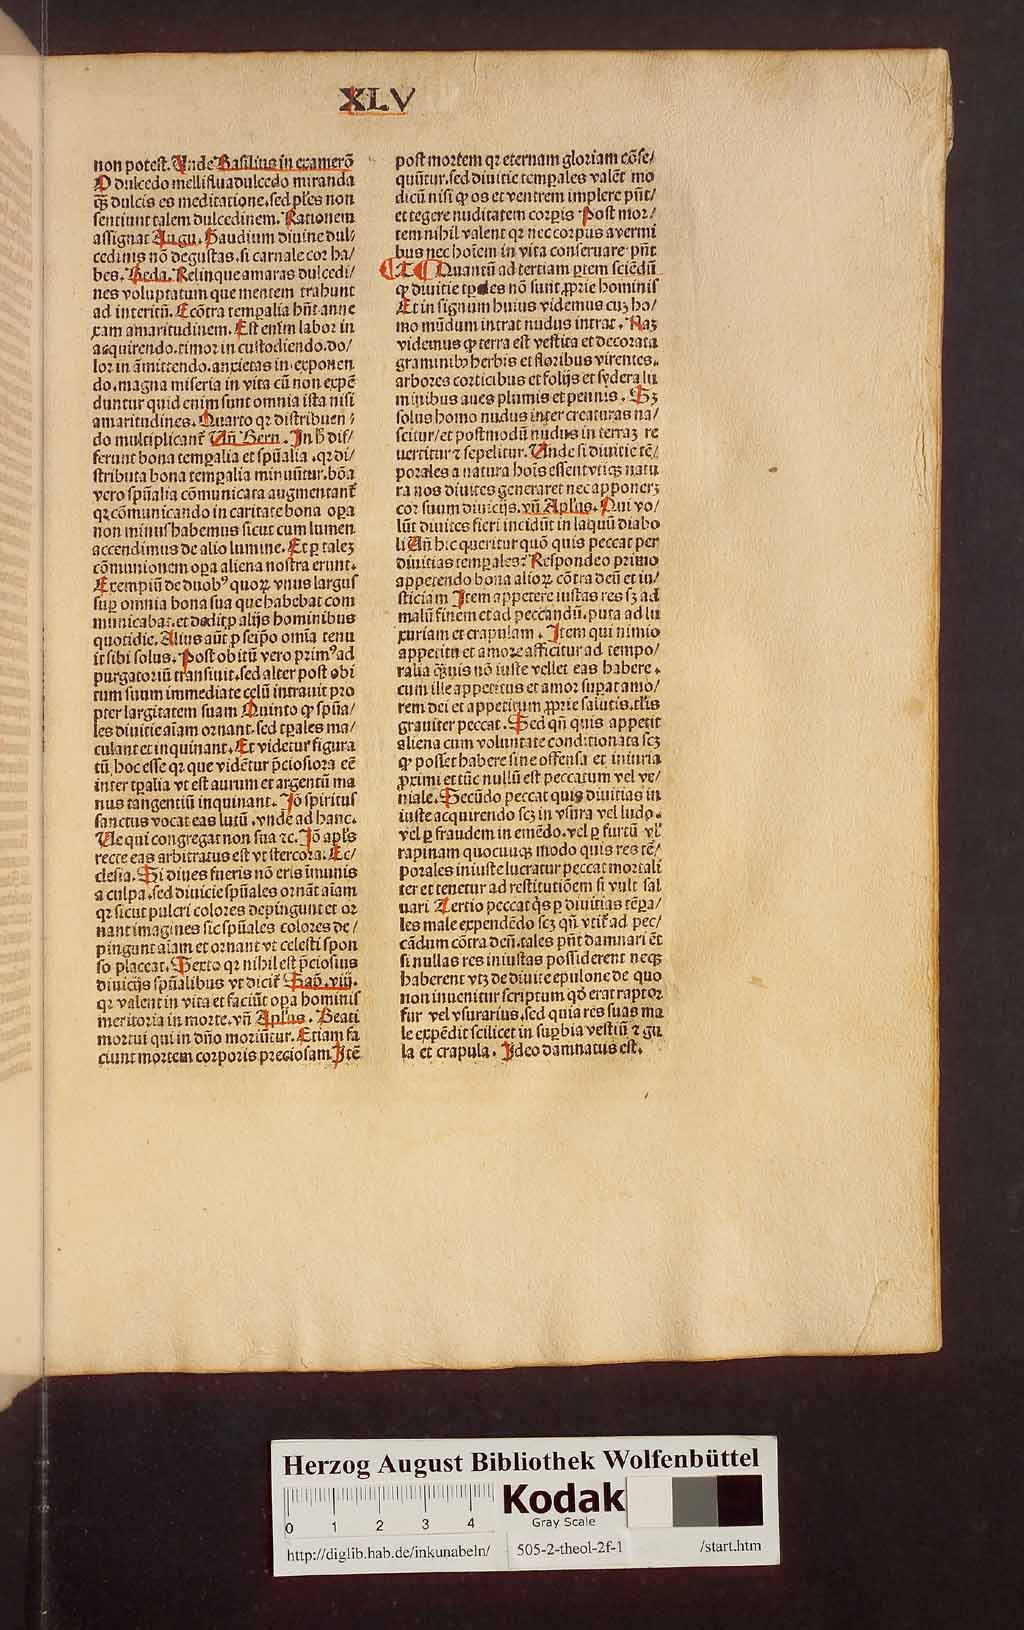 XLV
non potest. Unde Basilius in examerō
O dulcedo melliflua dulcedo miranda
q̃ȝ dulcis es meditatione. sed pl̃es non
sentiunt talem dulcedinem. Rationem
assignat Augu. Gaudium diuine dul/
cedinis nō degustas. si carnale cor ha/
bes. Beda. Relinque amaras dulcedi/
nes voluptatum que mentem trahunt
ad interitū. Ecōtra temꝑalia hñt anne
xam amaritudinem. Est enim labor in
acquirendo. timor in custodiendo. do/
lor in āmittendo. anxietas in exponen
do. magna miseria in vita cū non expē
duntur quid enim sunt omnia ista nisi
amaritudines. Quarto qꝛ distribuen/
do multiplicant᷑ Uñ Bern. In h̾ dif/
ferunt bona temꝑalia et spūalia. qꝛ di/
stributa bona temꝑalia minuūtur. bōa
vero spūalia cōmunicata augmentant᷑
qꝛ cōmunicando in caritate bona oꝑa
non minus habemus sicut cum lumen
accendimus de alio lumine. Et ꝑ taleȝ
cōmunionem oꝑa aliena nostra erunt.
Exempiū de duobꝰ quoꝝ vnus largus
suꝑ omnia bona sua que habebat com
municabat. et dedit ꝑ alijs hominibus
quotidie. Alius aūt ꝓ seipō omīa tenu
it sibi solus. Post obitū vero primꝰ ad
purgatoriū transiuit. sed alter post obi
tum suum immediate celū intrauit pro
pter largitatem suam Quinto qꝙ spūa/
les diuitie aīam ornant. sed tꝑales ma/
culant et inquinant. Et videtur figura
tū hoc esse qꝛ que vidētur p̄ciosiora eē
inter tꝑalia vt est aurum et argentū ma
nus tangentiū inquinant. Iō spiritus
sanctus vocat eas lutū. vnde ad hanc.
Ue qui congregat non sua ⁊c. Iō apl̃s
recte eas arbitratus est vt stercora. Ec/
clesia. Si diues fueris nō eris īmunis
a culpa. sed diuicie spūales ornāt aīam
qꝛ sicut pulcri colores depingunt et or
nant imagines sic spūales colores de/
pingunt aīam et ornant vt celesti spon
so placeat. Sexto qꝛ nihil est p̄ciosius
diuicijs spūalibus vt dicit᷑ Sap̄. viij.
qꝛ valent in vita et faciūt oꝑa hominis
meritoria in morte. vñ Apl̃us. Beati
mortui qui in dño moriūtur. Etiam fa
ciunt mortem corporis preciosam Itē
post mortem qꝛ eternam gloriam cōse/
quūtur. sed diuitie temꝑales valēt mo
dicū nisi ꝙ os et ventrem implere pñt/
et tegere nuditatem corꝑis Post mor/
tem nihil valent qꝛ nec corpus a vermi
bus nec hoīem in vita conseruare pñt
C Quantū ad tertiam ꝑtem sciēdū
ꝙ diuitie tꝑales nō sunt ꝓprie hominis
Et in signum huius videmus cuȝ ho/
mo mūdum intrat nudus intrat. Naȝ
videmus ꝙ terra est vestita et decorata
graminibȝ herbis et floribus virentes.
arbores corticibus et folijs et sydera lu
minibus aues plumis et pennis. Sȝ
solus homo nudus inter creaturas na/
scitur/et postmodū nudus in terraȝ re
uertitur ⁊ sepelitur. Unde si diuitie tē/
porales a natura hoīs essent vtiqȝ natu
ra nos diuites generaret nec apponerȝ
cor suum diuicijs. vñ Apl̃us. Qui vo/
lūt diuites fieri incidūt in laquū diabo
li Uñ hic queritur quō quis peccat per
diuitias temꝑales? Respondeo primo
appetendo bona alioꝝ cōtra deū et iu/
sticiam Item appetere iustas res sȝ ad
malū finem et ad peccandū. puta ad lu
xuriam et crapulam. Item qui nimio
appetitu et amore afficitur ad tempo/
ralia q̃uis nō iuste vellet eas habere.
cum ille appetitus et amor suꝑat amo/
rem dei et appetitum ꝓprie salutis. tl̃is
grauiter peccat. Sed qñ quis appetit
aliena cum voluntate conditionata scȝ
ꝙ posset habere sine offensa et iniuria
ꝓximi et tūc nullū est peccatum vel ve/
niale. Secūdo peccat quis diuitias in
iuste acquirendo scȝ in vsura vel ludo.
vel ꝑ fraudem in emēdo. vel ꝑ furtū vl̃
rapinam quocuqȝ modo quis res tē/
porales iniuste lucratur peccat mortali
ter et tenetur ad restitutiōem si vult sal
uari Tertio peccat q̓s ꝑ diuitias tēꝑa/
les male expendēdo scȝ qñ vtit᷑ ad pec/
cādum cōtra deū. tales pñt damnari ēt
si nullas res iniustas possiderent necqȝ
haberent vtȝ de diuite epulone de quo
non inuenitur scriptum qꝺ erat raptor
fur vel vsurarius. sed quia res suas ma
le expēdit scilicet in suꝑbia vestiū ⁊ gu
la et crapula. Ideo damnatus est.
Herzog August Bibliothek Wolfenbüttel
0 1 2 3 4
Kodak
Gray Scale
http://diglib.hab.de/inkunabeln/ 505-2-theol-2f-1 /start.htm